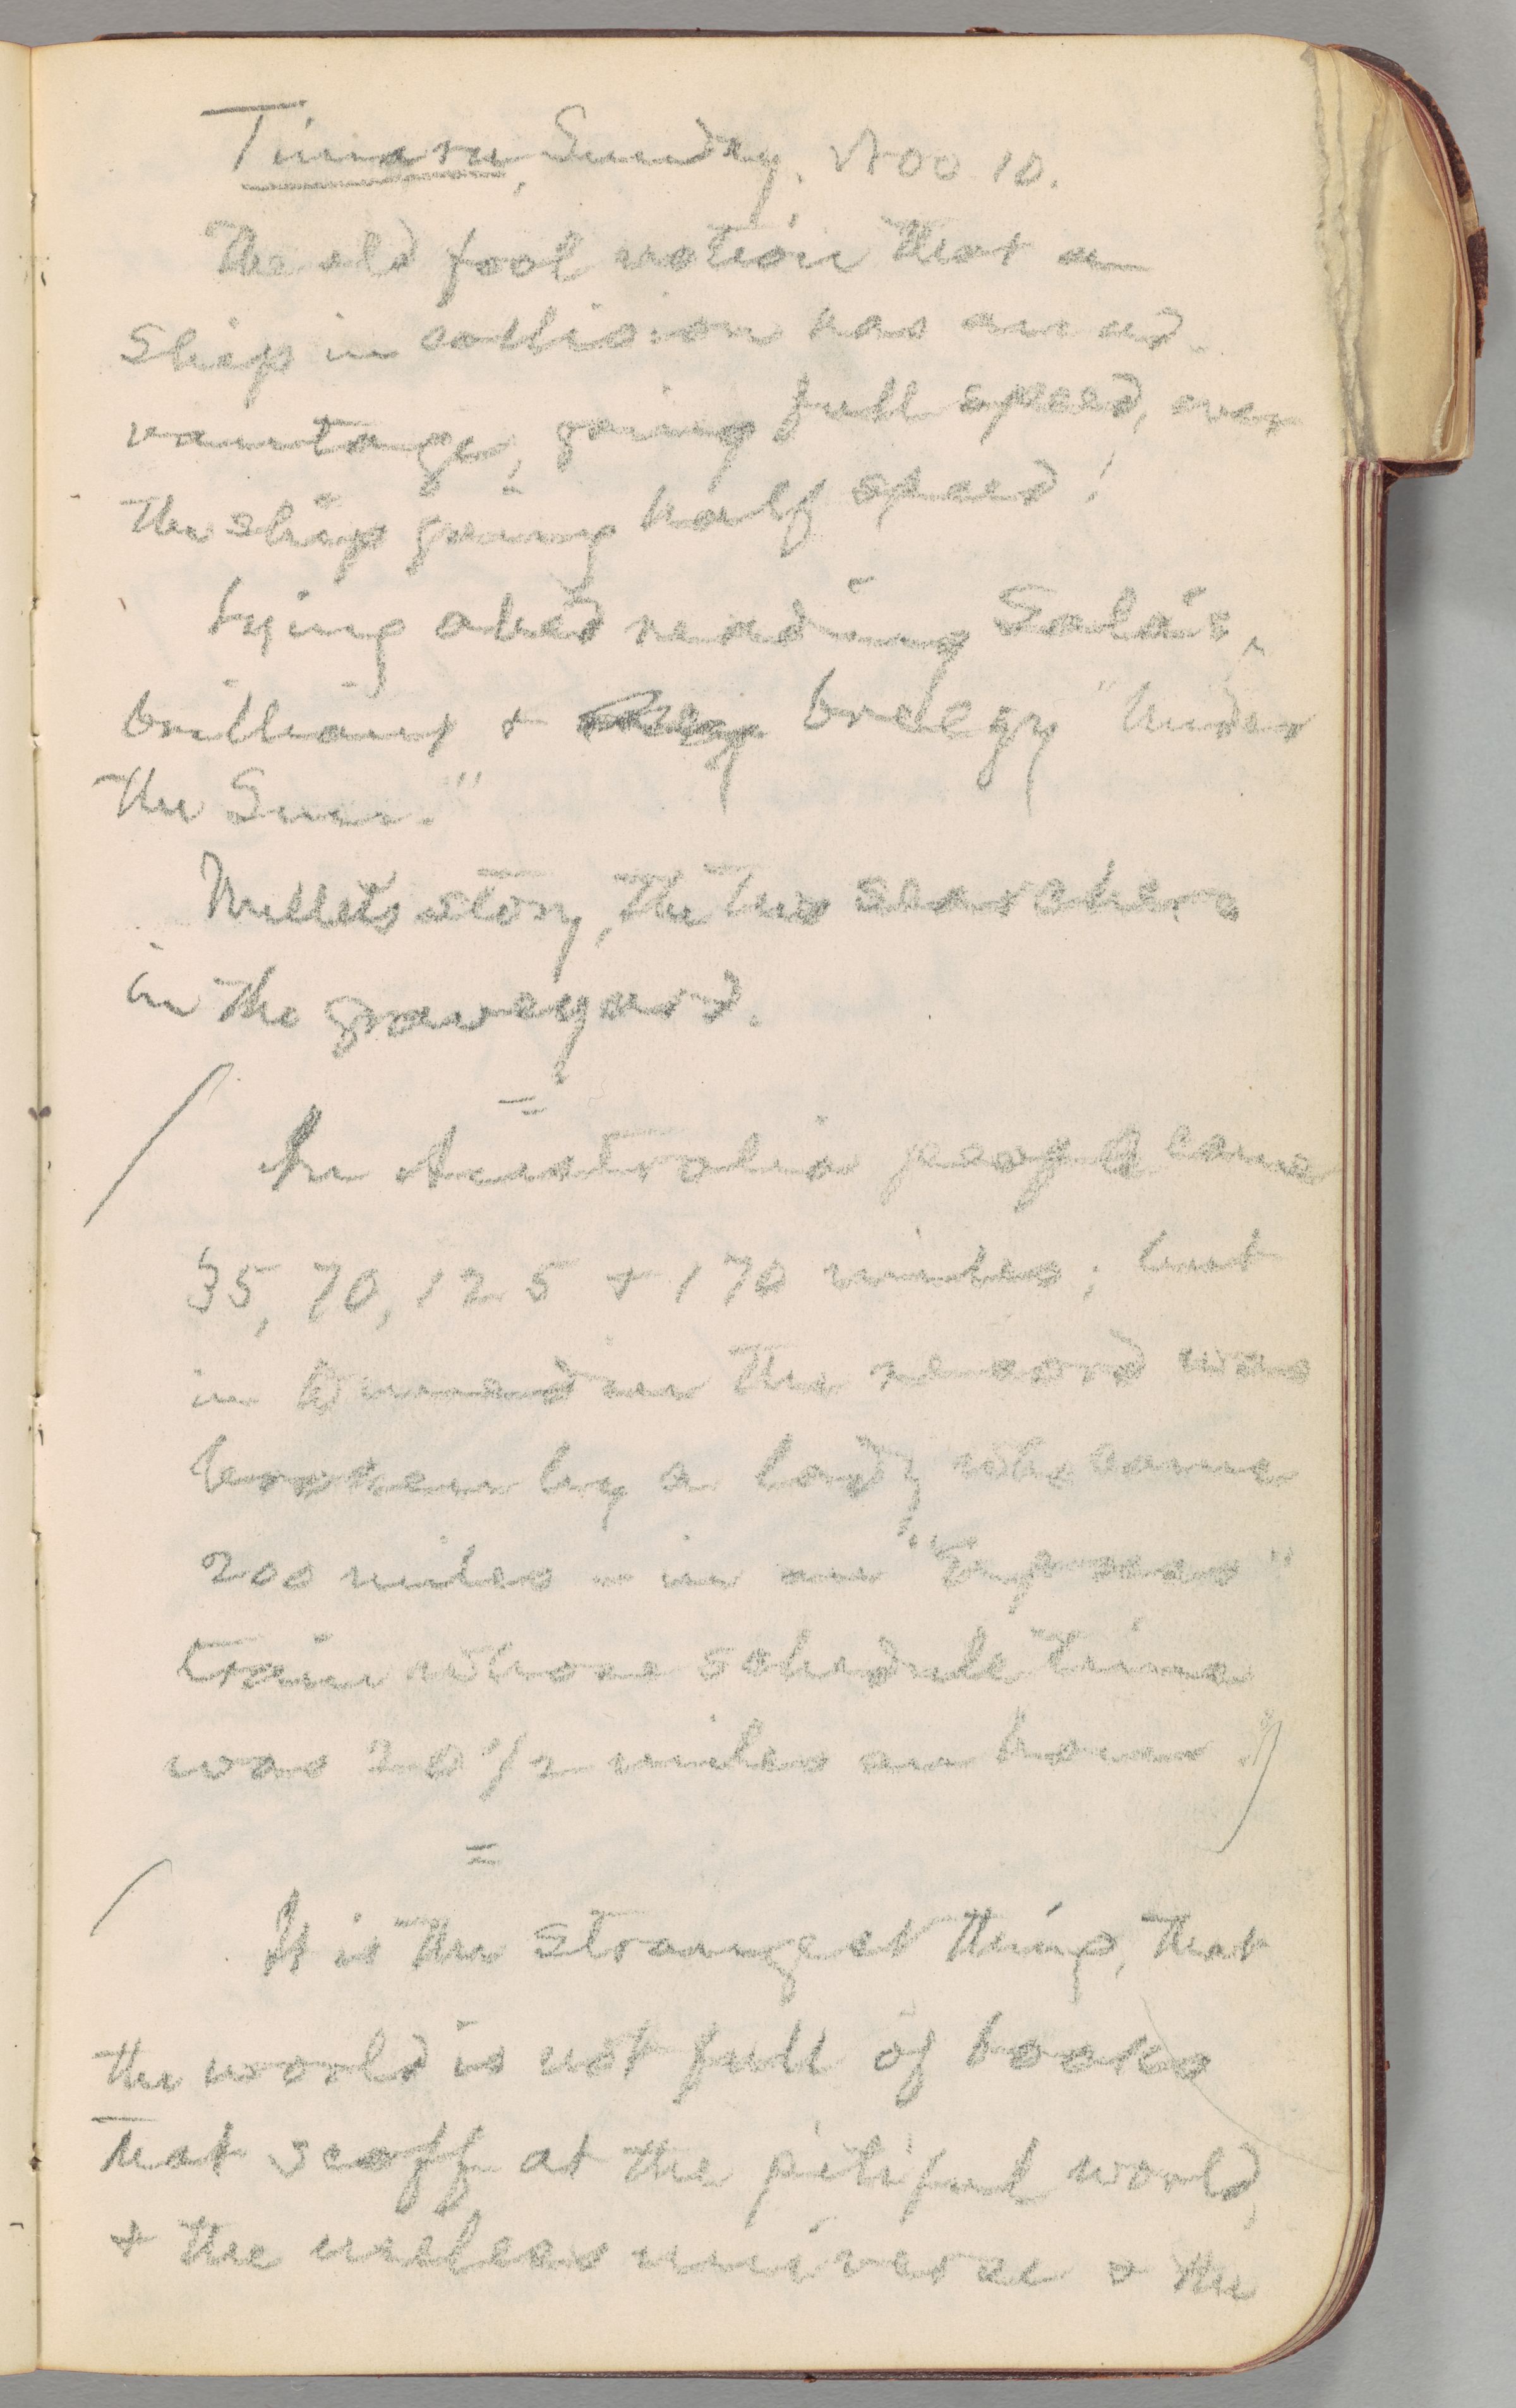 Timaru, Sunday. Nov 10.
The old fool notion that a
ship in collision has an ad-
vantage, going full speed, over
the ship going half speed!
Lying abed reading Sala's
brilliant & breezy "Under
the Sun."
story, the two searchers
in the graveyard.
=
In Australia people came
35, 70, 125 & 170 miles; but
in Dunedin the record was
broken by a lady who came
200 miles - in an "Express"
train whose schedule time
was 20 1/2 miles an hour.
=
It is the strangest thing, that
the world is not full of books
that scoff at the pitiful world,
& the useless universe & the